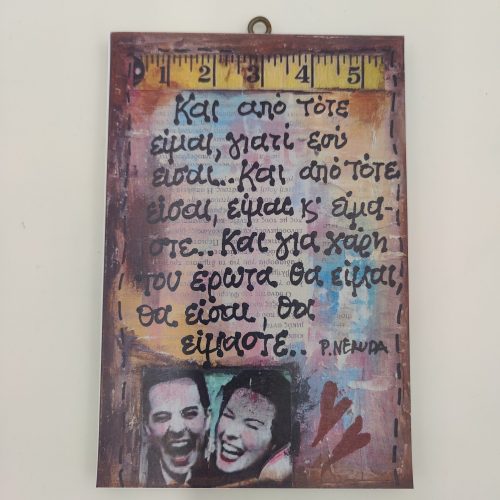 1 2 3 4 5
Και από τότε
είμαι, γιατί εσύ
είσαι.. Και από τότε
είσαι, είμαι κ' είμα-
στε.. Και για χάρη
του έρωτα θα είμαι,
θα είσαι, θα
είμαστε..
P. NERUDA